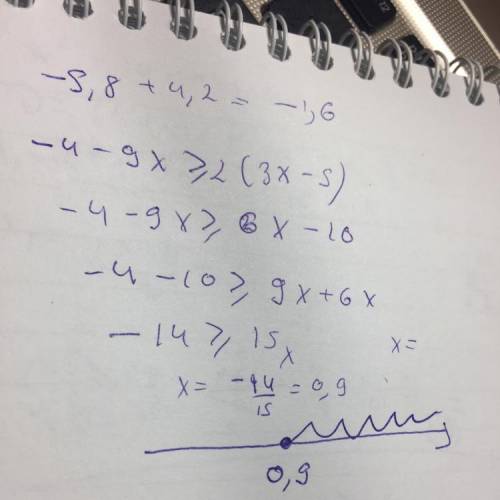 -5,8 + 4,2 = -1,6
-4 - 9x ⩾ 2(3x - 5)
-4 - 9x ⩾ 6x - 10
-4 - 10 ⩾ 9x + 6x
-14 ⩾ 15x
x =
x = -14/15 = 0,9
0,9